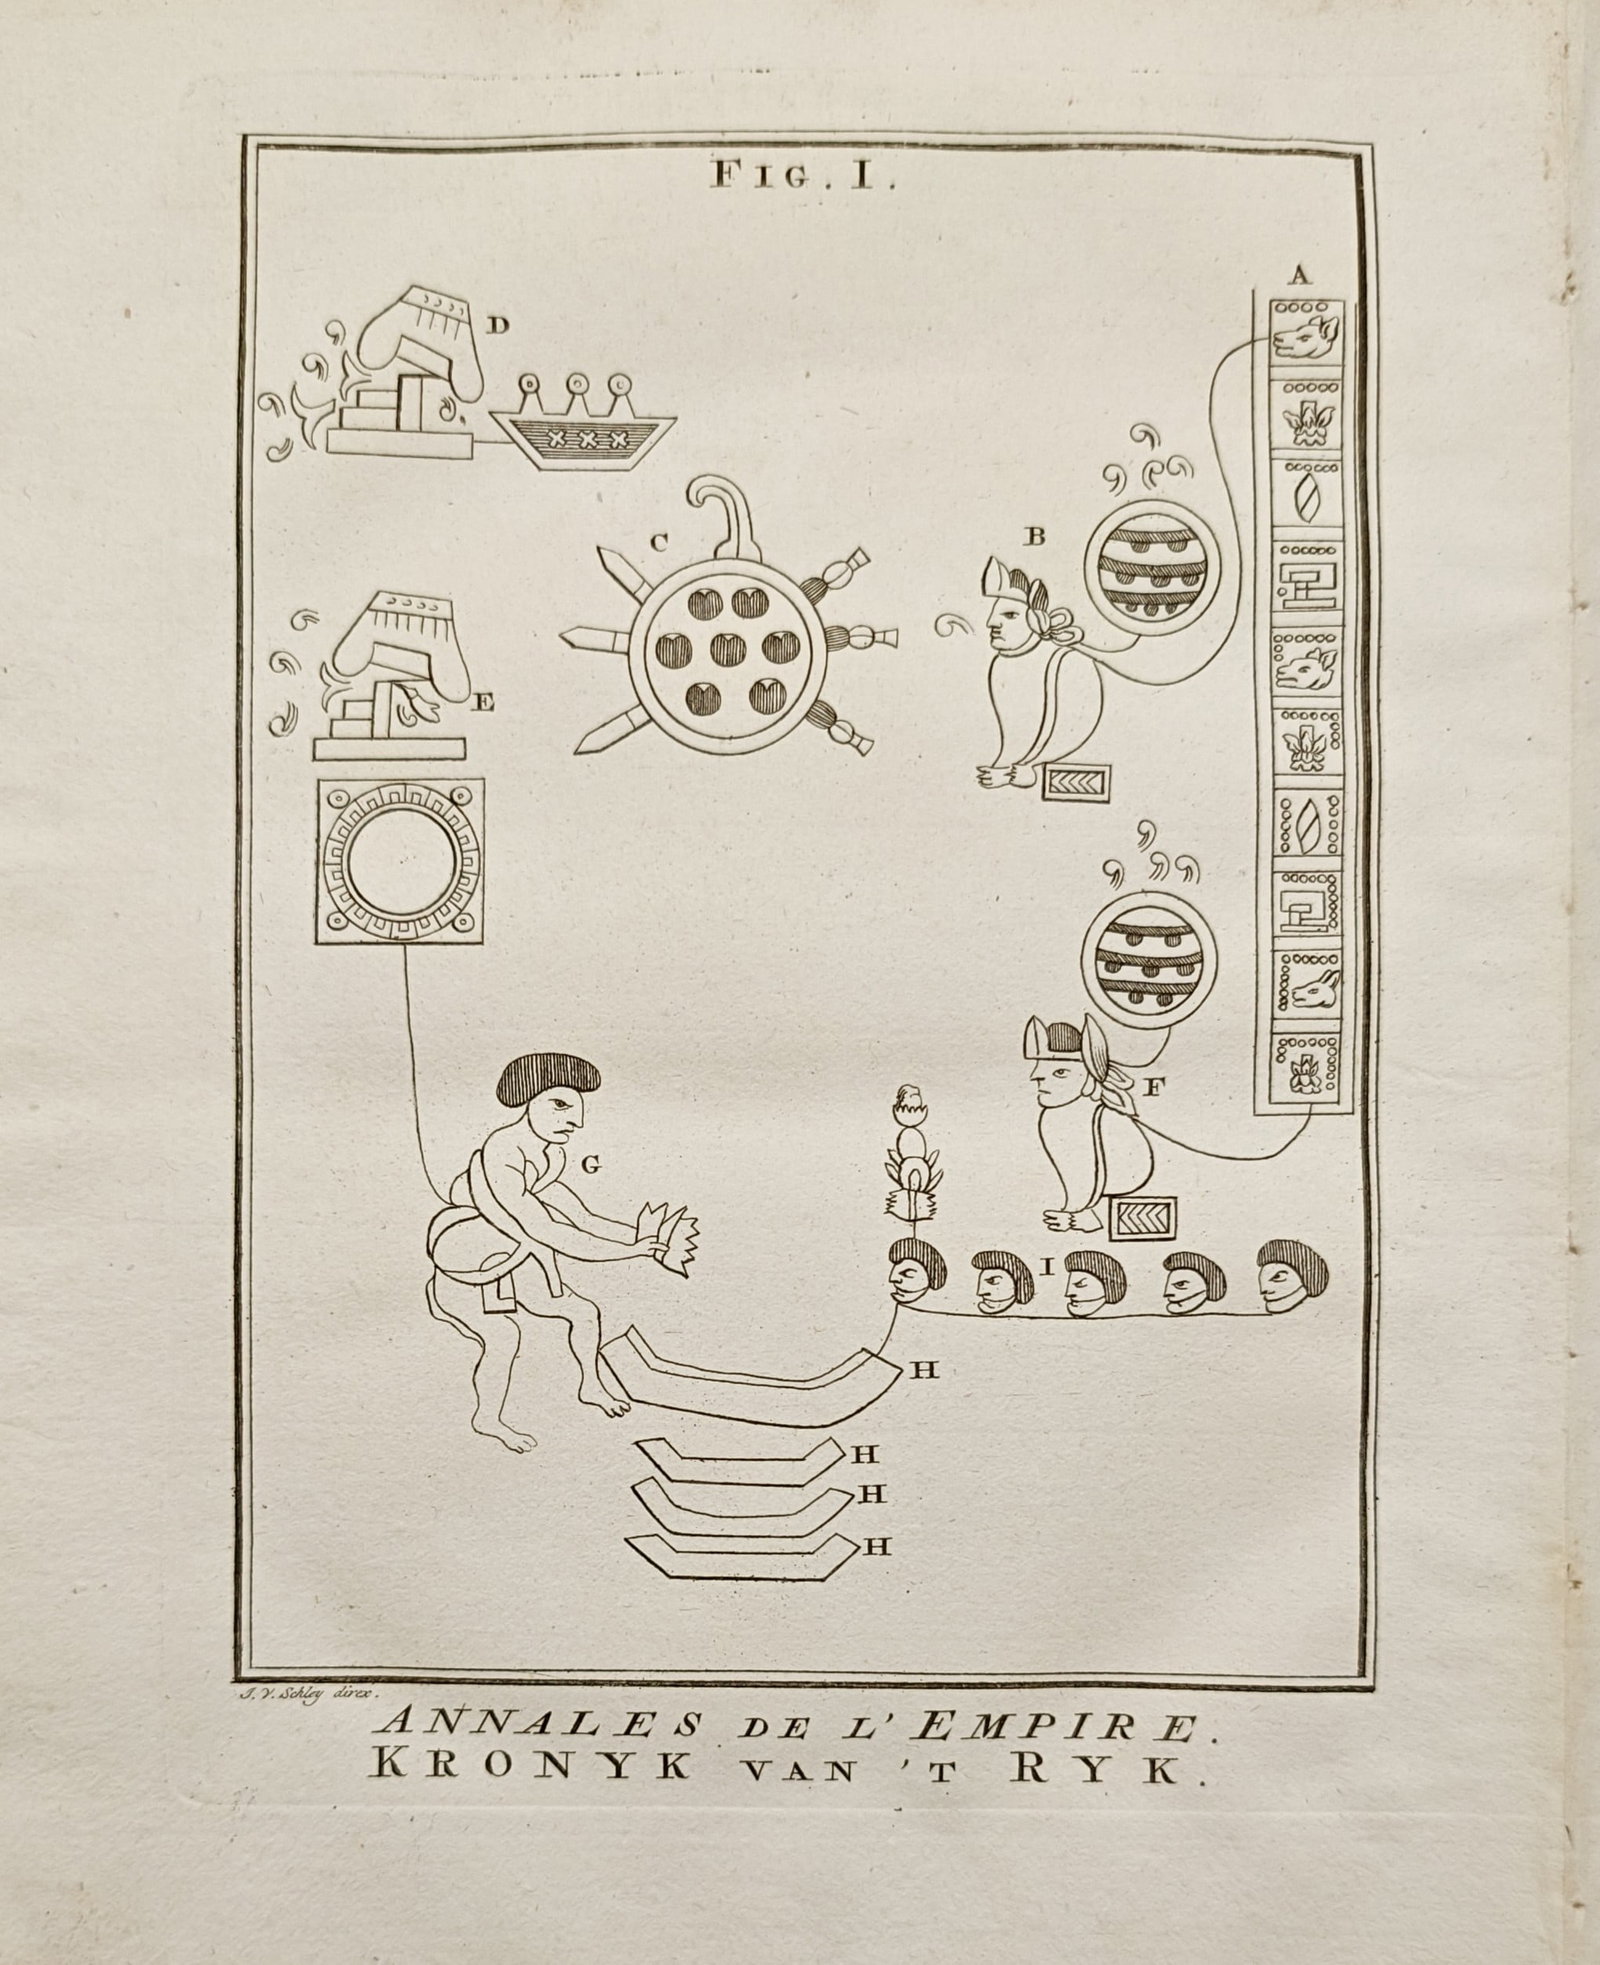 FIG. I.
A
D
C
B
E
F
G
I
H
H
H
H
J. V. Schley direx.
ANNALES DE L'EMPIRE.
KRONYK VAN 'T RYK.